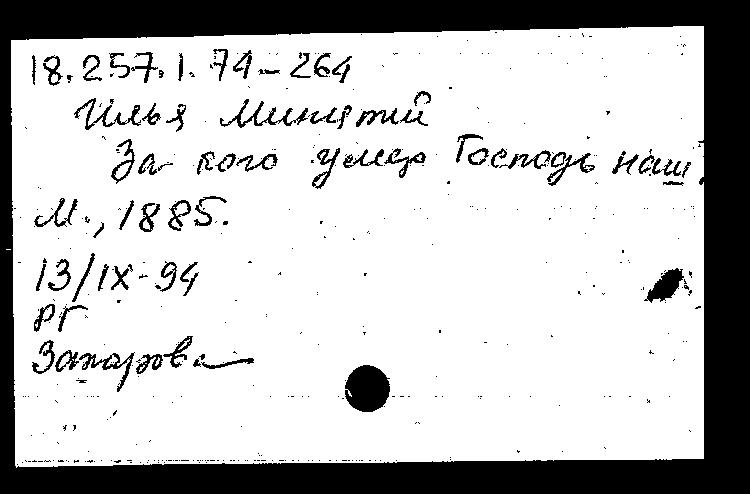 18.257.1.74-264
Илья Минятий
За кого умер Господь наш.
М., 1885.
13/IX-94
РГ
Захарова